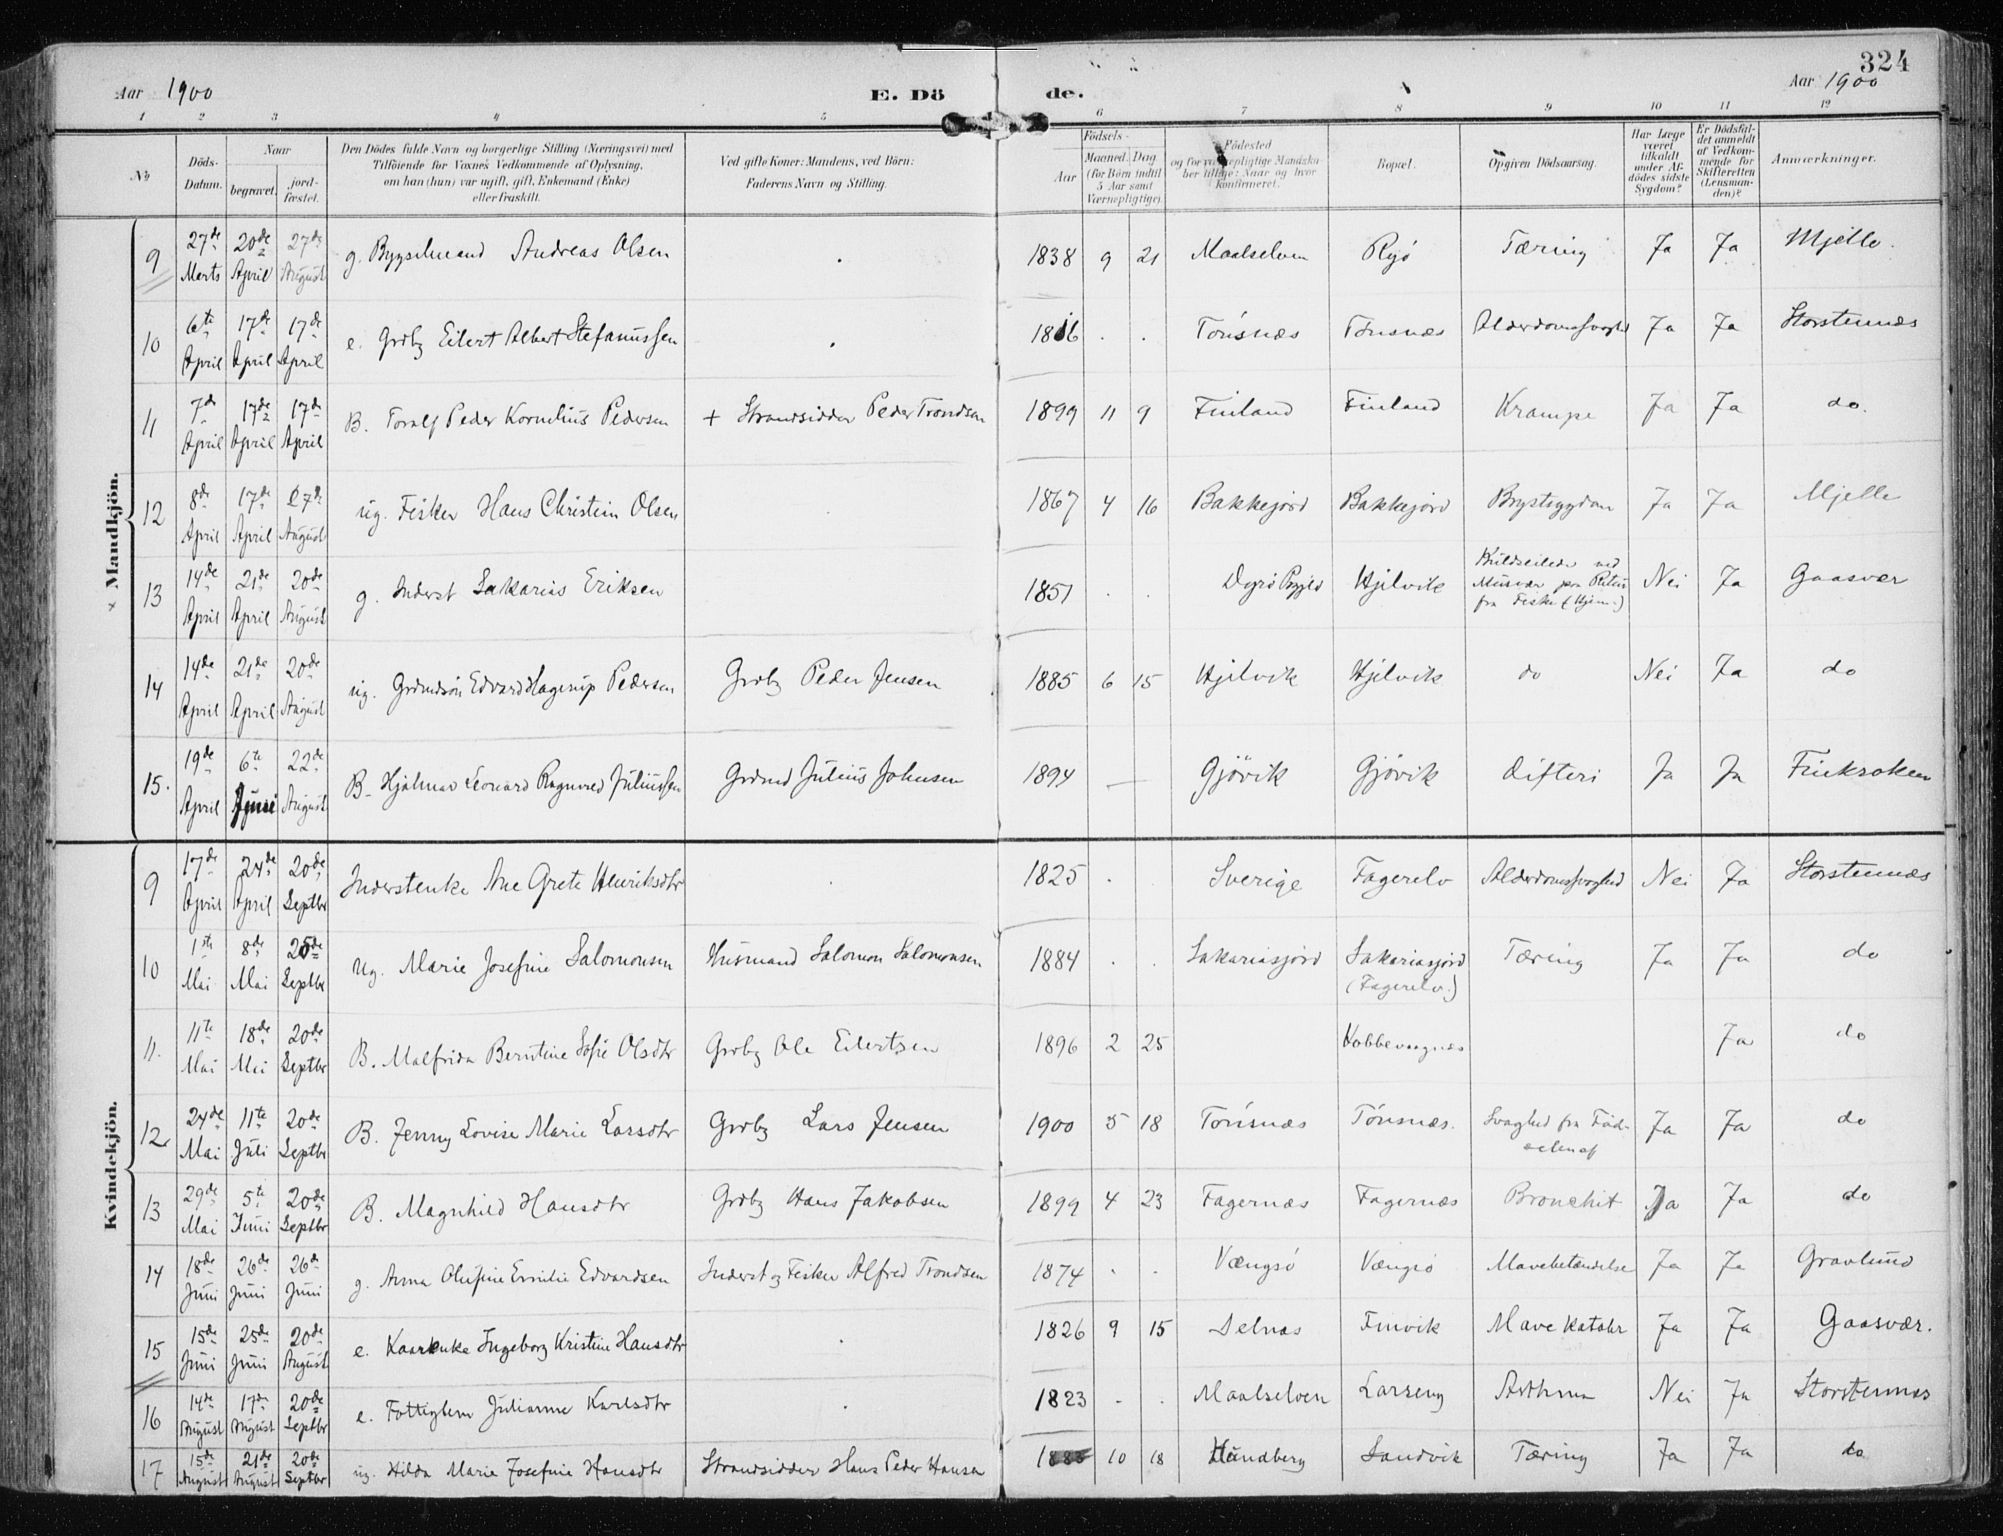 324
Aar 1900 E. Dö de. Aar 1900
1 2 3 4 5 6 7 8 9 10 11 12
№ Döds-Datum. Naar begravet. jord-fæstet. Den Dödes fulde Navn og borgerlige Stilling (Næringsvei) med Tilföiende for Voxnes Vedkommende af Oplysning, om han (hun) var ugift, gift, Enkemand (Enke) eller fraskilt. Ved gifte Koner: Mandens, ved Börn: Faderens Navn og Stilling. Födsels- Aar Maaned. Dag (for Börn indtil 5 Aar samt Værnepligtige). Födested og for værnepligtige Mandskaber tillige: Naar og hvor konfirmeret. Bopæl. Opgiven Dödsaarsag. Har Læge været tilkaldt under Afdödes sidste Sygdom? Er Dödsfaldet anmeldt af Vedkommende for Skifteretten (Lensmanden)? Anmærkninger.
× Mandkjön.
9 27de Marts 20de April 27de August g. Bygselmand Andreas Olsen 1838 9 21 Maalselven Ryö Tæring Ja Ja Mjelle.
10 6te April 17de April 17de April e. Grdbg Eilert Albert Stefanussen 1816 Tönsnæs Tönsnæs Alderdomssvaghd Ja Ja Storstennæs
11 7de April 17de April 17de April B. Toralf Peder Kornelius Pedersen + Strandsidder Peder Trondsen 1899 11 9 Finland Finland Krampe Ja Ja do.
12 8de April 17de April 27de August ug. Fisker Hans Christein Olsen 1867 4 16 Bakkejord Bakkejord Brystsygdom Ja Ja Mjelle
13 14de April 21de April 20de August g. Inderst Sakarias Eriksen 1851 Dyrö Hjilvik Kuldseilede ved Musvær paa Retur fra Fiske (Hjem.) Nei Ja Gaasvær
14 14de April 21de April 20de August ug. Grdmdsön Edvard Hagerup Pedersen Grdbg Peder Jensen 1885 6 15 Hjilvik Hjilvik do Nei Ja do
15. 19de April 6te Juni 22de August B. Hjalmar Leonard Ragnvald Juliussen Grdmd Julius Johnsen 1894 — Gjövik Gjövik Difteri Ja Ja Finkroken
Kvindekjön.
9 17de April 24de April 20de Septbr Inderstenke Ane Grete Henriksdtr 1825 Sverige Fagerelv Alderdomssvaghed Nei Ja Storstennæs
10 1ste Mai 8de Mai 25de Septbr Ug. Marie Josefine Salomonsen Husmand Salomon Salomonsen 1884 Sakariasjord Sakariasjord (Fagerelv.) Tæring Ja Ja do
11. 11te Mai 18de Mai 20de Septbr B. Malfrida Berntine Sofie Olsdtr Grdbg Ole Eilertsen 1896 2 25 Kobbevaagnæs Ja do
12 24de Mai 11te Juli 20de Septbr B. Jenny Lovise Marie Larsdtr Grdbg Lars Jensen 1900 5 18 Tönsnæs Tönsnæs. Svaghed fra Fødselen af Ja Ja do
13 29de Mai 5te Juni 20de Septbr B. Magnhild Hansdtr Grdbg Hans Jakobsen 1899 4 23 Fagernæs Fagernæs Bronchit Ja Ja do
14 18de Juni 26de Juni 26de Juni g. Anna Olufine Emilie Edvardsen Inderst og Fisker Alfred Trondsen 1874 Vængsö Vængsö Mavebetændelse Ja Ja Gravlund
15 15de Juni 25de Juni 20de August e. Kaarenke Ingeborg Kristine Hansdtr 1826 9 15 Selnæs Finvik Mave katahr Ja Ja Gaasvær.
16 14de August 17de August 20de Septbr e. Fattiglem Julianne Karlsdtr 1823 Maalselven Larseng Asthma Nei Ja Storstennæs
17 15de August 21de August 20de Septbr ug. Hilda Marie Josefine Hansdtr Strandsidder Hans Peder Hansen 10 18 Hundberg Sandvik Tæring Ja Ja do